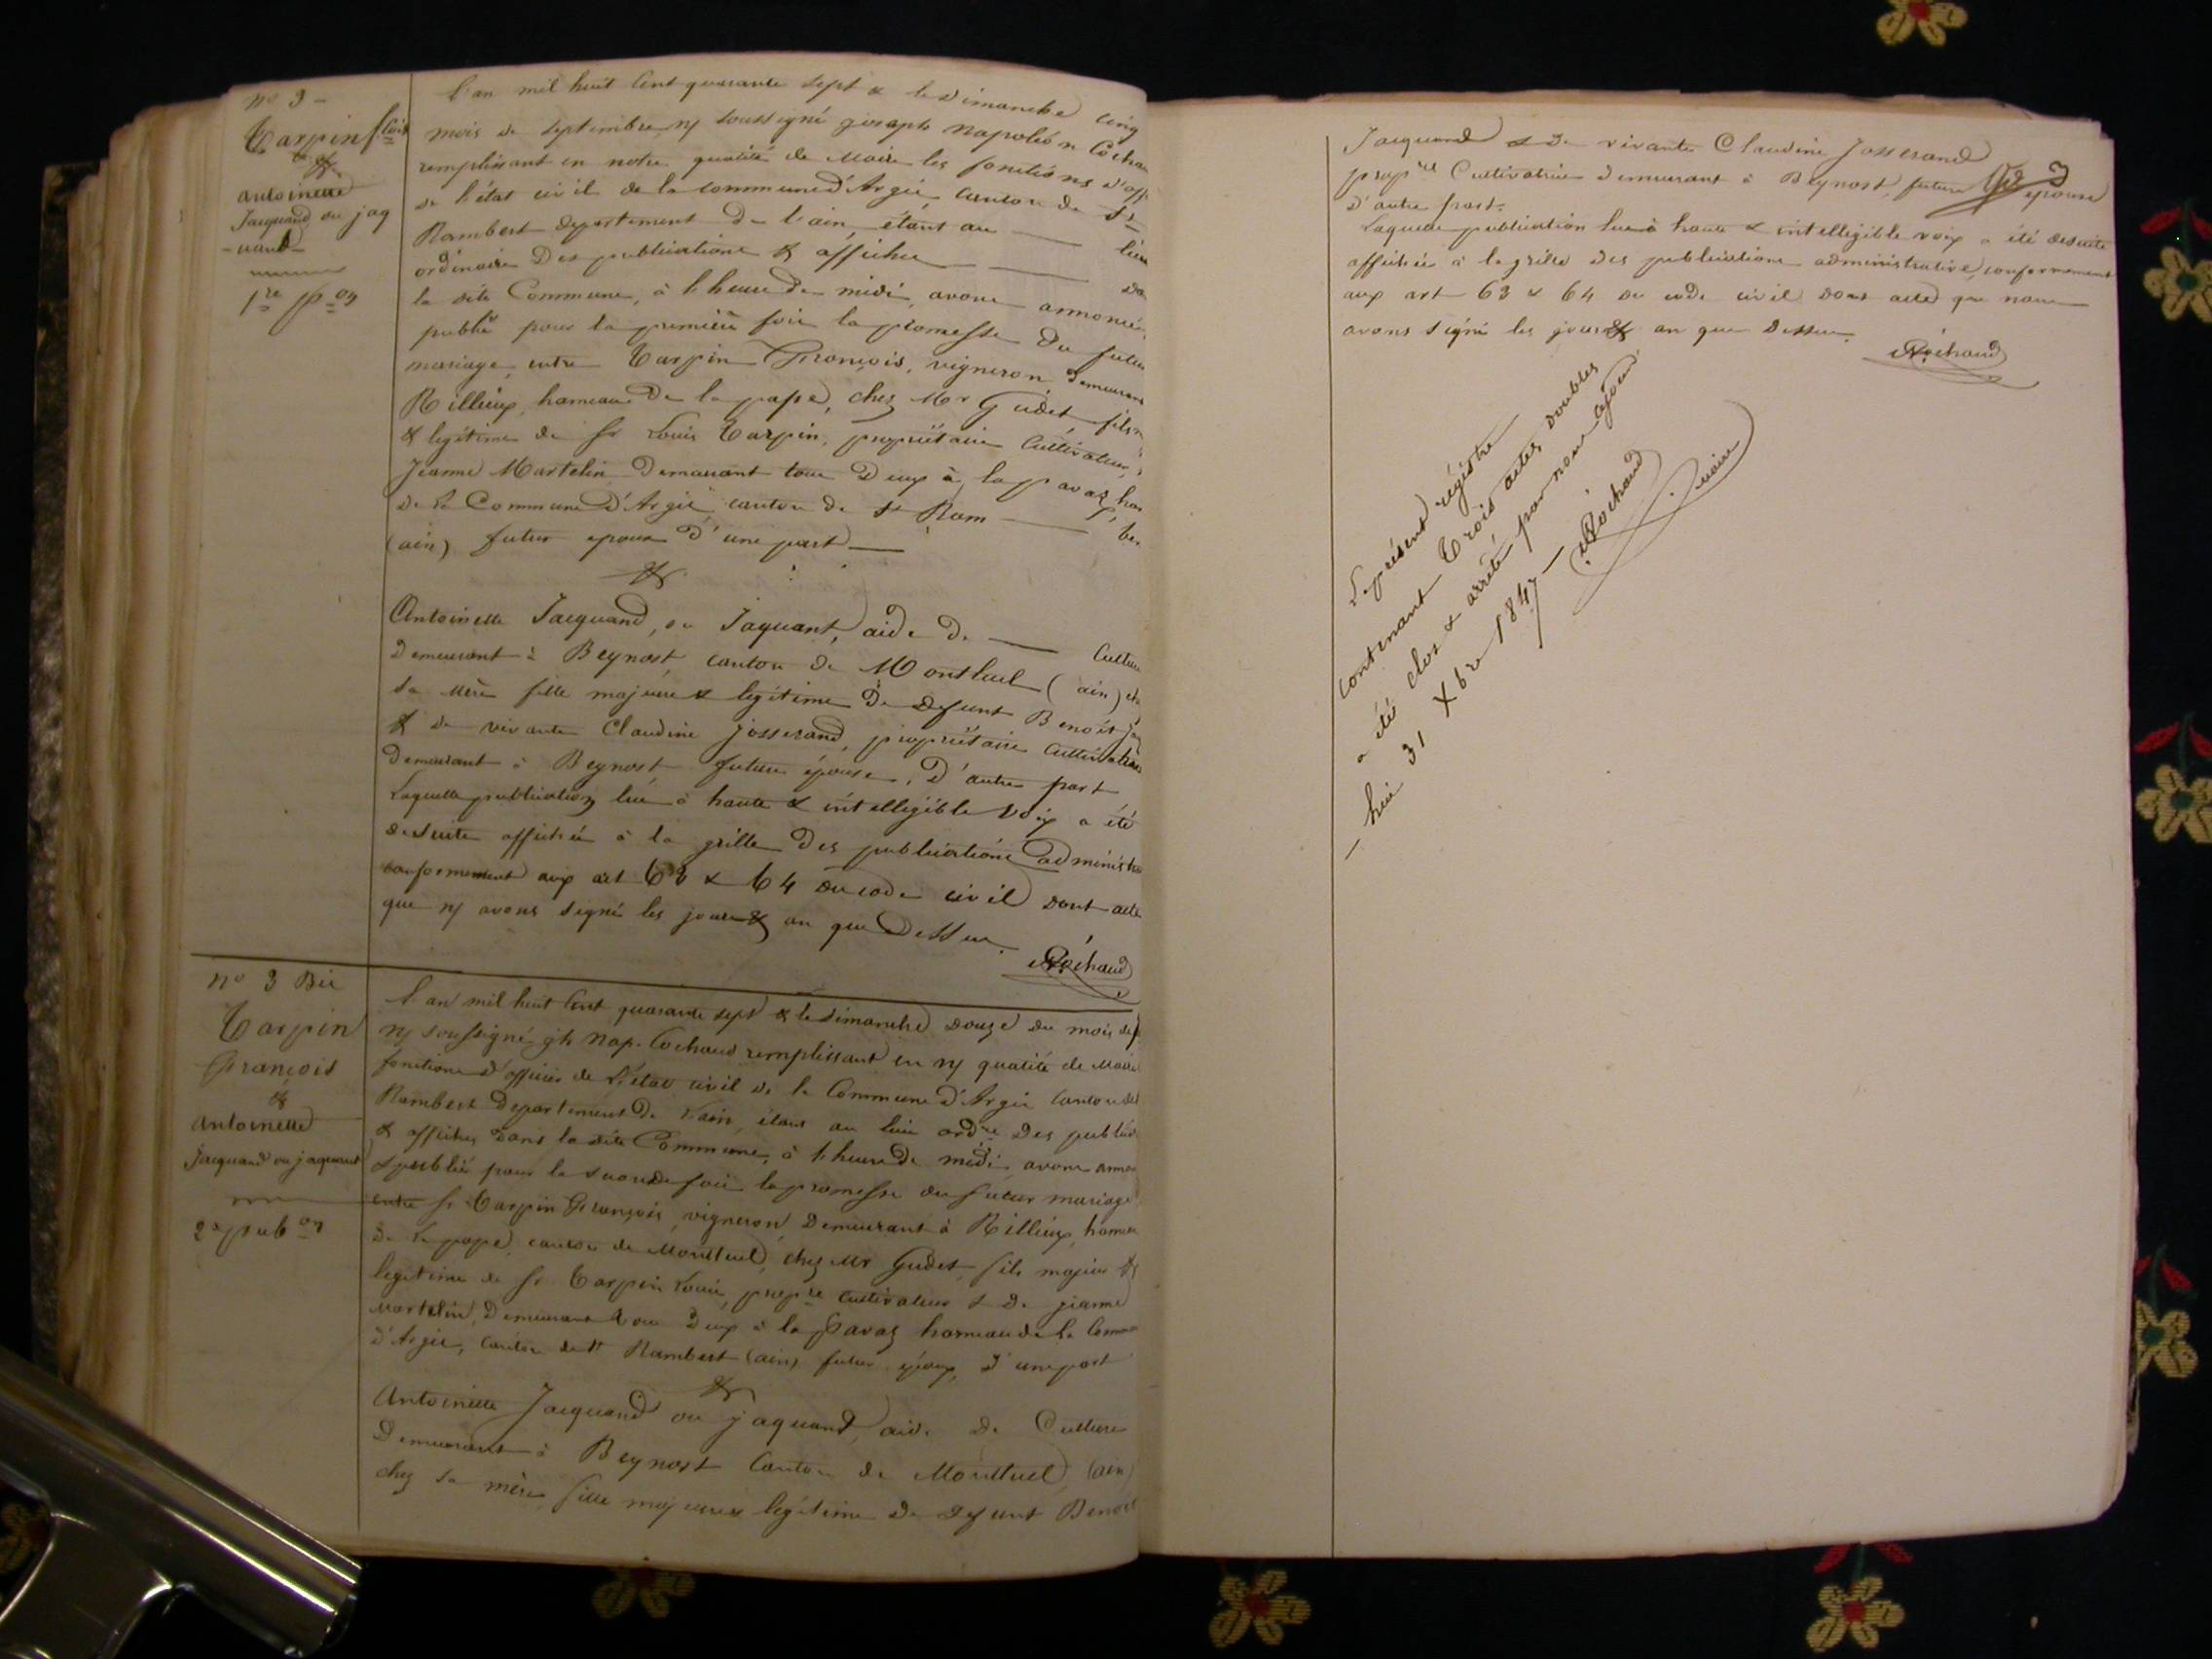 no 3 -
Tarpin fçois
&
antoinette
Jacquand ou jaq
- uand -
1re pon
l'an mil huit cent quarante sept & le dimanche cinq
mois de septembre, ns soussigné joseph Napoléon Cochau
remplissant en notre qualité de Maire les fonctions d'off
de l'état civil de la commune d'Argis, canton de St
Rambert departement de l'ain, étant au — lieu
ordinaire des publications & affiches — da
la dite Commune, à l'heure de midi, avons annoncé
publié pour la première fois la promesse du futur
mariage, entre Tarpin François, vigneron, demeurant
Rillieux, hameau de la pape, chez Mr Gudet fils m
& legitime de sr Louis Tarpin, propriétaire Cultivateur,
Jeanne Martelin demeurant tous deux à la pavaz ham
de la Commune d'Argis, canton de St Ram — ber
(ain) futur epoux d'une part —
&
Antoinette Jacquand, ou Jaquant, aide de — Culture
demeurant à Beynost canton de Montluel (ain) che
sa mère fille majeure & legitime de defunt Benoit Jaq
& de vivante Claudine Josserand, propriétaire Cultivatrice
demeurant à Beynost future épouse, d'autre part
Laquelle publication lue à haute & intelligible voix a été
desuite affichée à la grille des publications administra
conformement aux art 63 & 64 du code civil dont acte
que ns avons signé les jour & an que dessus.
Cochaud
no 3 Bis
Tarpin
François
&
antoinette
Jacquand ou jaquand
2e pubon
l'an mil huit cent quarante sept & le dimanche douze du mois de
ns soussigné jh Nap. Cochaud remplissant en ns qualité de Maire
fonctions d'officier de l'état civil de la Commune d'Argis canton de St
Rambert departement de l'ain, étant au lieu ordre des public
& affiches dans la dite Commune, à l'heure de midi, avons annon
& publié pour la seconde fois la promesse du futur mariage
entre sr Tarpin François, vigneron, demeurant à Rillieux, hameau
de la pape, canton de Montluel, chez Mr Gudet, fils majeur &
legitime de sr Tarpin Louis, propre cultivateur & de jeanne
Martelin, demeurant tous deux à la Pavaz hameau de la Commu
d'Argis, canton de St Rambert (ain) futur époux, d'une part
&
Antoinette Jacquand ou jaquand, aide de Culture
demeurant à Beynost Canton de Montluel, (ain)
chez sa mère, fille majeure & legitime de defunt Benoit
Jacquand & de vivante Claudine Josserand
propre Cultivatrice demeurant à Beynost, future epouse
d'autre part.
Laquelle publication lue à haute & intelligible voix a été desuite
affichée à la grille des publications administrative, conformement
aux art 63 & 64 du code civil dont acte que nous
avons signé les jour & an que dessus.
Cochaud
Le présent régistre
contenant Trois actes doubles
a été clos & arrêté par nous ajourd
- hui 31 Xbre 1847 -
Cochaud
maire